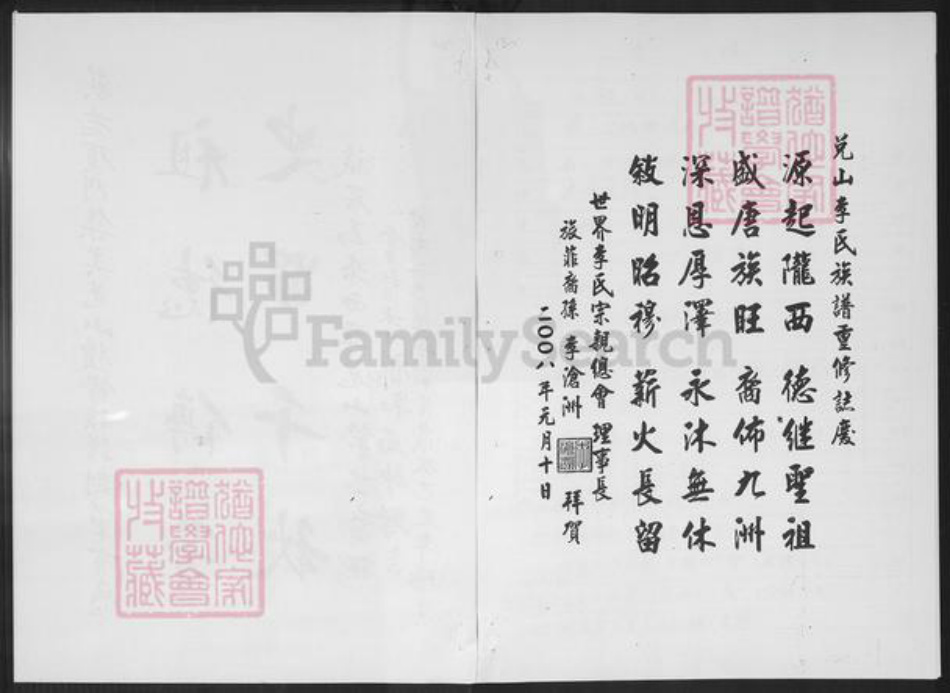 兌山李氏族譜重修誌慶
源起隴西 德继聖祖
盛唐族旺 裔佈九洲
深恩厚澤 永沐無休
敍明昭穆 薪火長留
世界李氏宗親總會理事長
旅菲裔孫 李滄洲 拜賀
二00八年元月十日
FamilySearch
譜學會
收藏
譜學會
收藏